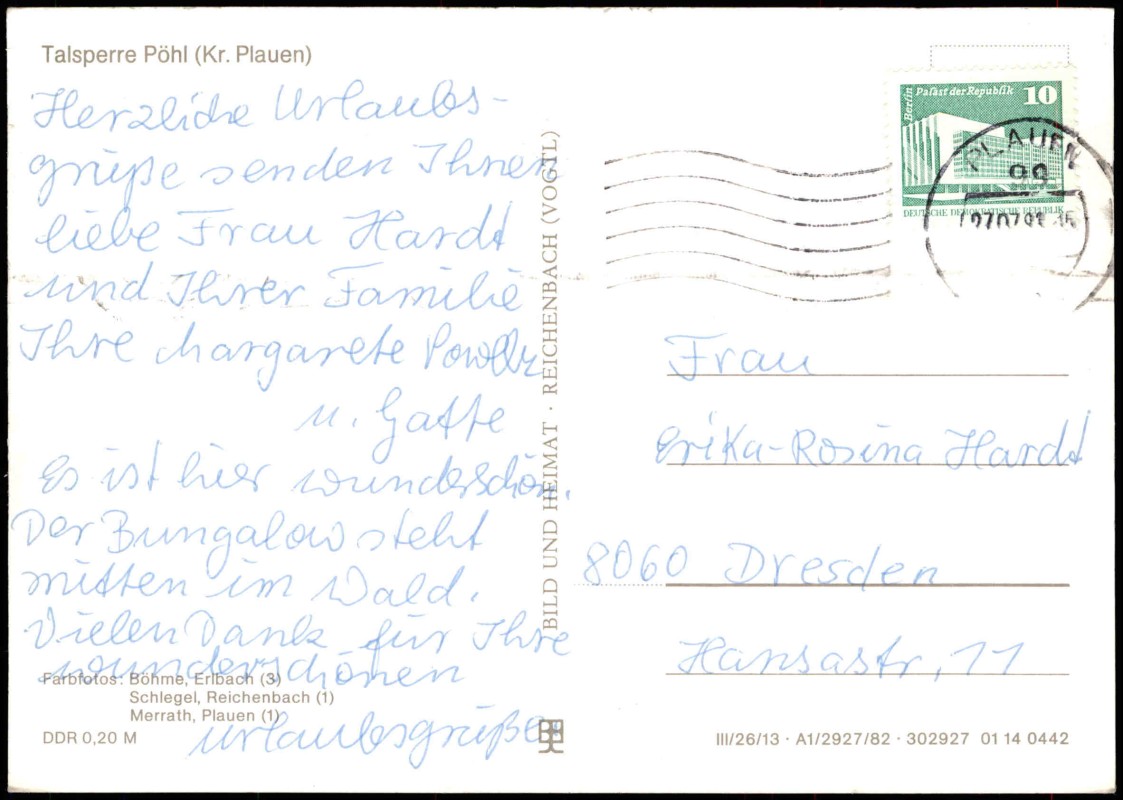 Talsperre Pöhl (Kr. Plauen)
Herzliche Urlaubs-
grüße senden Ihnen
liebe Frau Hardt
und Ihrer Familie
Ihre Margarete
u. Gatte
Es ist hier wunderschön.
Der Bungalow steht
mitten im Wald.
Vielen Dank für Ihre
wunderschönen
Urlaubsgrüße
Farbfotos: Böhme, Erlbach (3)
Schlegel, Reichenbach (1)
Merrath, Plauen (1)
DDR 0,20 M
BILD UND HEIMAT · REICHENBACH (VOGTL)
Berlin
Palast der Republik 10
DEUTSCHE DEMOKRATISCHE REPUBLIK
PLAUEN
Frau
Erika-Rosina Hardt
8060 Dresden
Hansastr, 11
III/26/13 · A1/2927/82 · 302927 01 14 0442